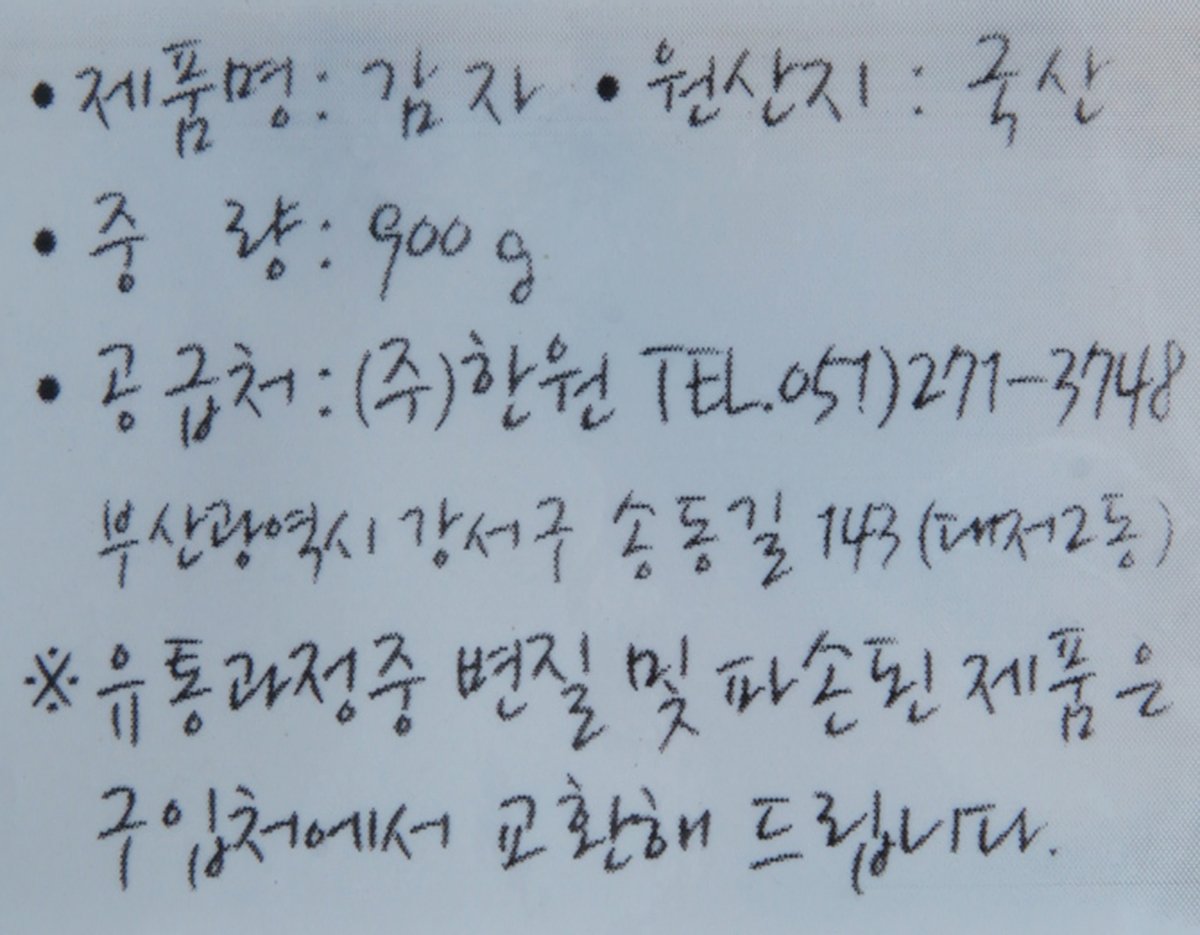 • 제품명: 감자 • 원산지 : 국산
• 중 량: 900g
• 공급처: (주)한원 TEL.051)271-3748
부산광역시 강서구 송동길 143 (대저2동)
※ 유통과정중 변질 및 파손된 제품은
구입처에서 교환해 드립니다.